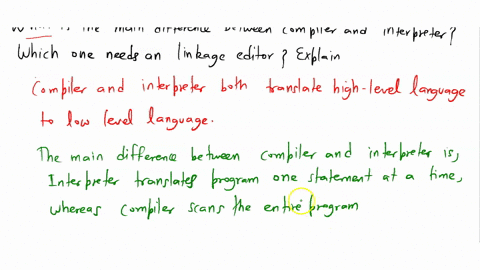 What is the main difference between compiler and interpreter?
Which one needs an linkage editor? Explain
Compiler and interpreter both translate high-level language
to low level language.
The main difference between compiler and interpreter is,
Interpreter translates program one statement at a time,
whereas compiler scans the entire program